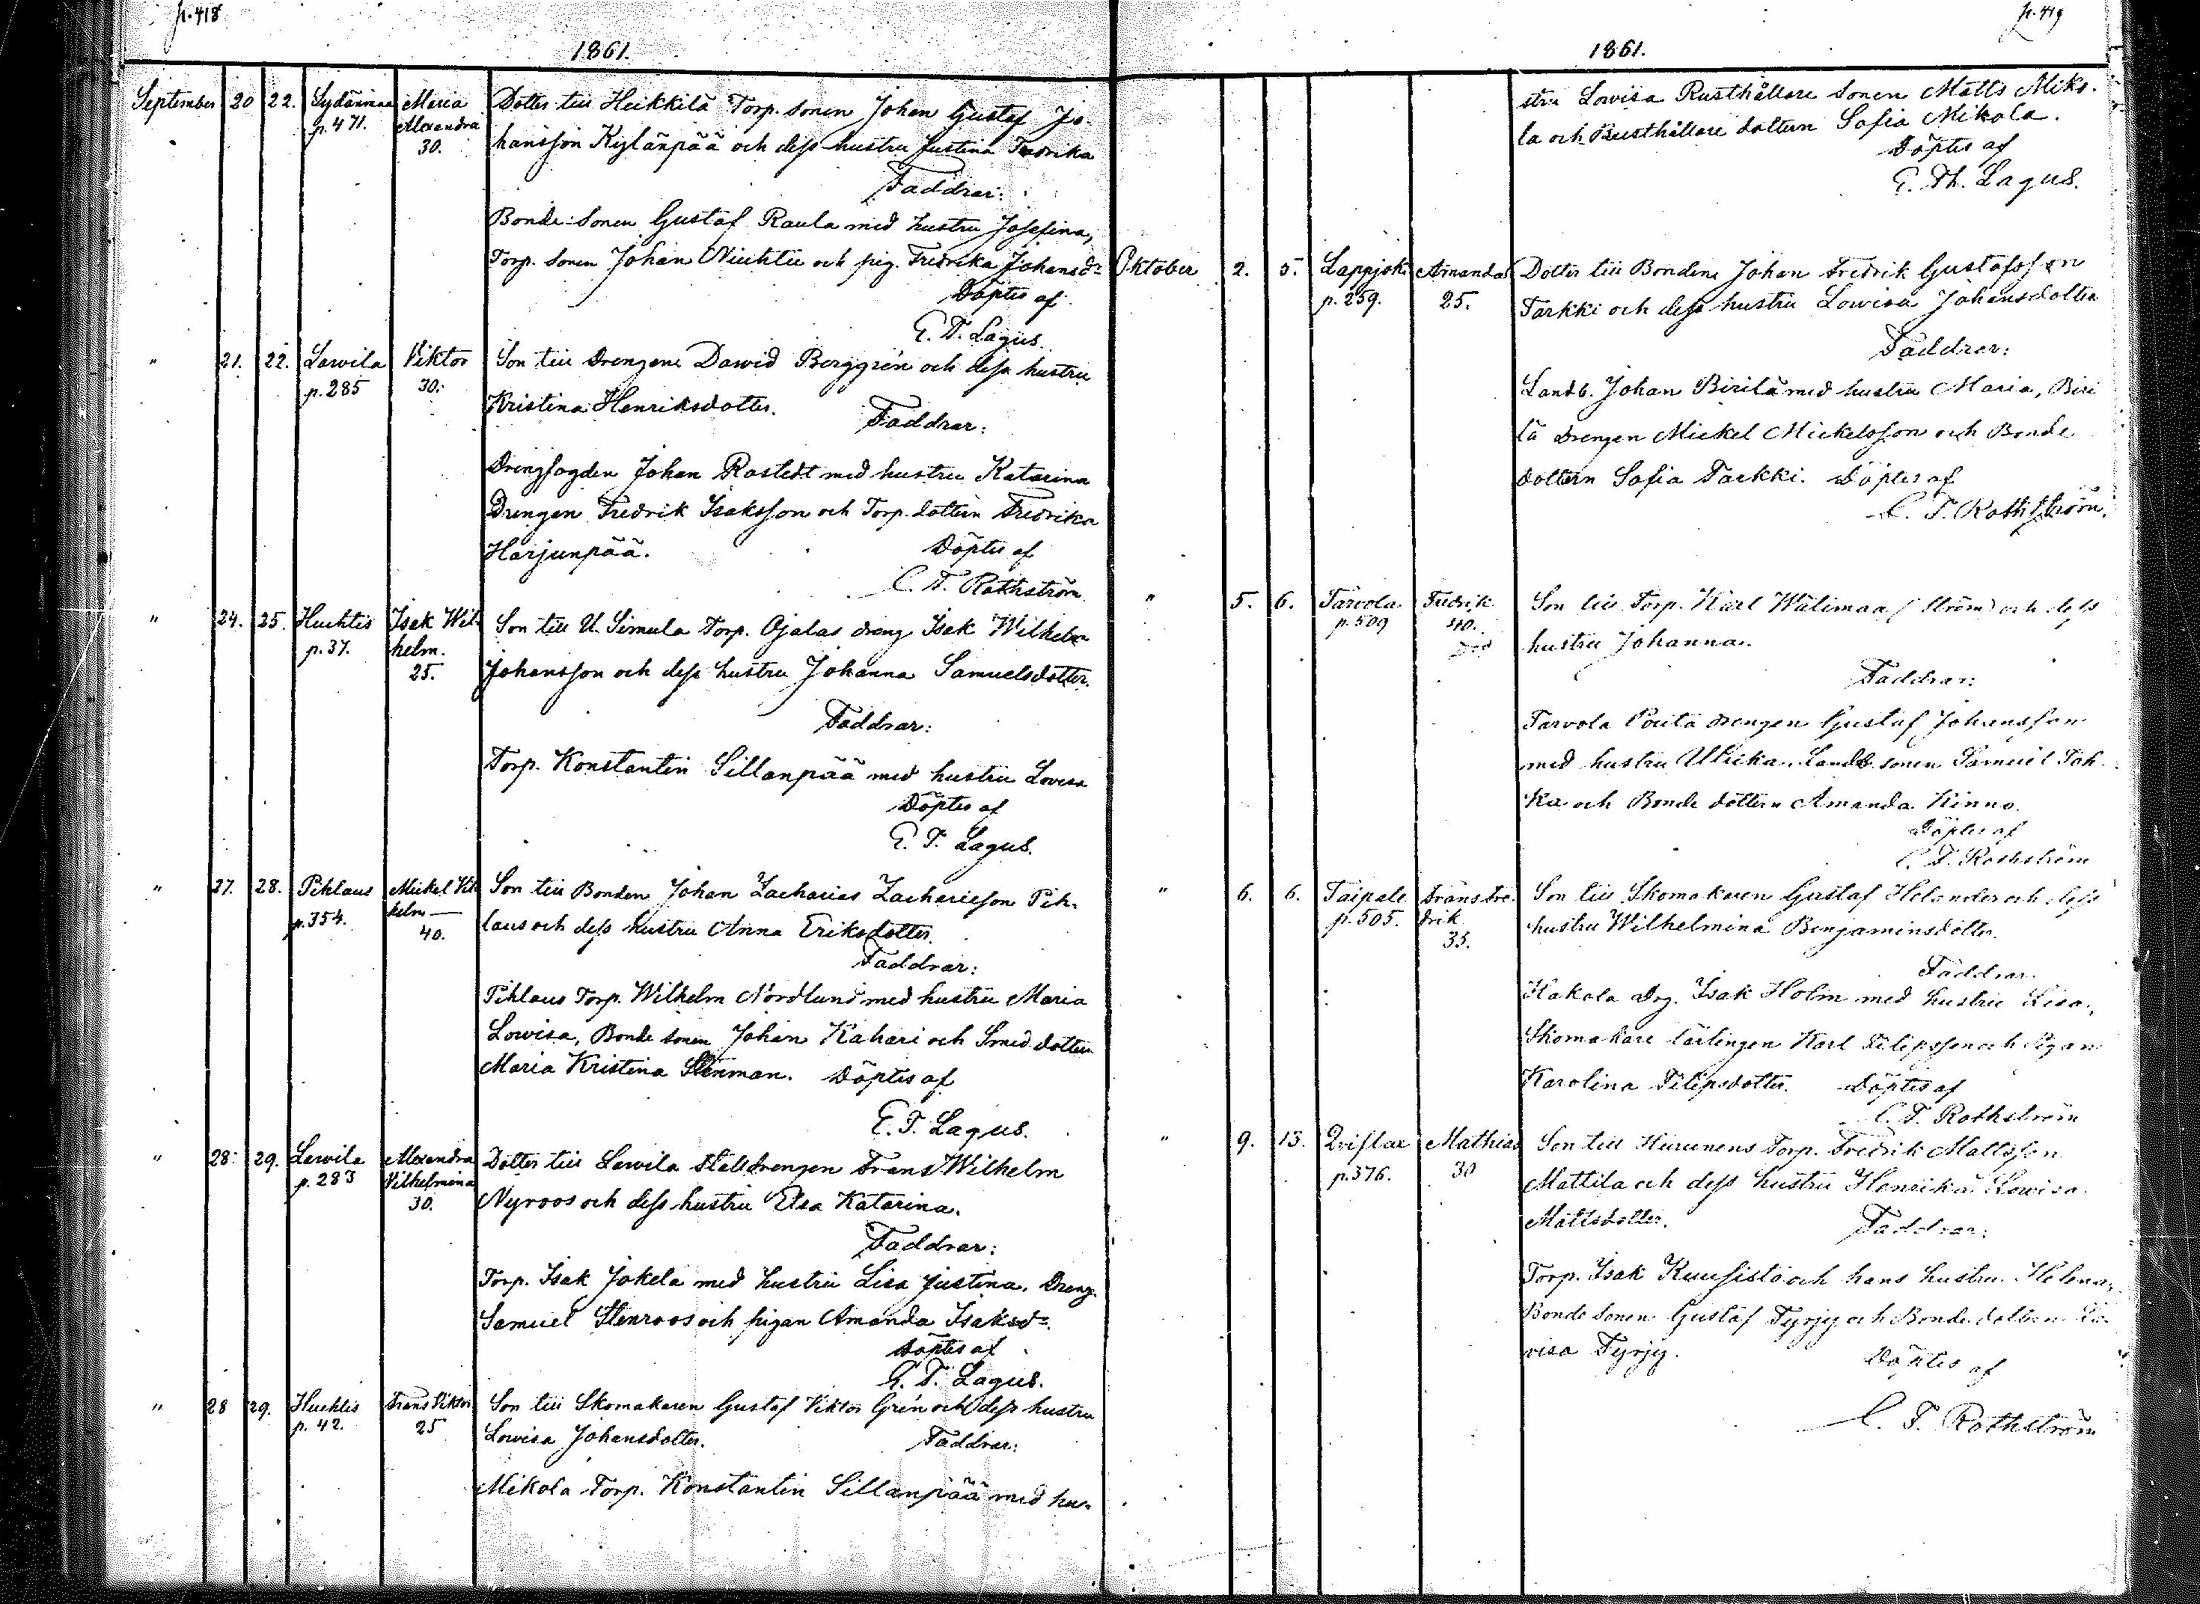 p. 418
1861.
September 20 22. Sydänmaa p. 471. Maria Alexandra 30.
Dotter till Heikkilä Torp. sonen Johan Gustaf Jo-
hansson Kylänpää och dess hustru Justina Fredrika
Faddrar:
Bonde sonen Gustaf Raula med hustru Josefina,
Torp. sonen Johan Niuhtu och pig. Fredrika Johansdr
Döptes af
E. T. Lagus.
" 21. 22. Lavila p. 285 Viktor 30.
Son till Drengene Dawid Berggrén och dess hustru
Kristina Henriksdotter.
Faddrar:
Drengfogden Johan Rostedt med hustru Katarina
Drengen Fredrik Isaksson och Torp. dottern Fredrika
Harjunpää. Döptes af
C. T. Rothström
" 24. 25. Huchtis p. 37. Isak Wil-
helm. 25.
Son till U. Simula Torp. Ojalas dreng Isak Wilhelm
Johansson och dess hustru Johanna Samuelsdotter.
Faddrar:
Torp. Konstantin Sillanpää med hustru Lovisa
Döptes af
E. T. Lagus.
" 27. 28. Pihlaus p. 354. Mickel Vil-
helm 40.
Son till Bonden Johan Zacharias Zachariesson Pih-
laus och dess hustru Anna Eriksdotter.
Faddrar:
Pihlaus Torp. Wilhelm Nordlund med hustru Maria
Lowisa, Bonde sonen Johan Kahari och Smed dottern
Maria Kristina Stenman. Döptes af
E. T. Lagus.
" 28. 29. Lavila p. 283 Alexandra Vilhelmina 30.
Dotter till Lavila Stalldrengen Frans Wilhelm
Nyroos och dess hustru Elsa Katarina.
Faddrar:
Torp. Isak Jokela med hustru Lisa Justina, Dreng.
Samuel Stenroos och pigan Amanda Isaksdr.
Döptes af
E. T. Lagus.
" 28 29. Huchtis p. 42. Frans Viktor 25
Son till Skomakaren Gustaf Viktor Grén och dess hustru
Lowisa Johansdotter. Faddrar:
Mikola Torp. Konstantin Sillanpää med hu-
p. 419
1861.
stru Lowisa Rusthållare sonen Matts Miko-
la och Rusthållare dottern Sofia Mikola.
Döptes af
E. Th. Lagus.
Oktober 2. 5. Lappjoki p. 259. Amanda 25.
Dotter till Bondene Johan Fredrik Gustafsson
Tarkki och dess hustru Lowisa Johansdotter
Faddrar:
Landb. Johan Birilä med hustru Maria, Biri
lä drengen Mickel Mickelsson och Bonde
dottern Sofia Tarkki. Döptes af
C. T. Rothström.
" 5. 6. Tarvola p. 509 Fredrik 40.
Son till Torp. Karl Wälimaa (Ström) och dess
hustru Johanna.
Faddrar:
Tarvola Pouta drengen Gustaf Johansson
med hustru Ullrika, Landb. sonen Samuel Joh
ka och Bonde dottern Amanda Kinno.
Döptes af
C. T. Rothström
" 6. 6. Taipale p. 505. Frans Fre-
drik 35.
Son till Skomakaren Gustaf Helander och dess
hustru Wilhelmina Benjaminsdotter.
Faddrar.
Hakola drg. Isak Holm med hustru Lisa,
Skomakare lärlingen Karl Filipsson och Pigan
Karolina Filipsdotter. Döptes af
C. T. Rothström
" 9. 13. Qviflax p. 376. Mathias 30
Son till Hurunens Torp. Fredrik Mattsson
Mattila och dess hustru Henrika Lowisa
Mattsdotter. Faddrar:
Torp. Isak Kuusisto och hans hustru Helena,
Bonde sonen Gustaf Tyrjy och Bonde dottern Lo-
visa Tyrjy. Döptes af
C. T. Rothström